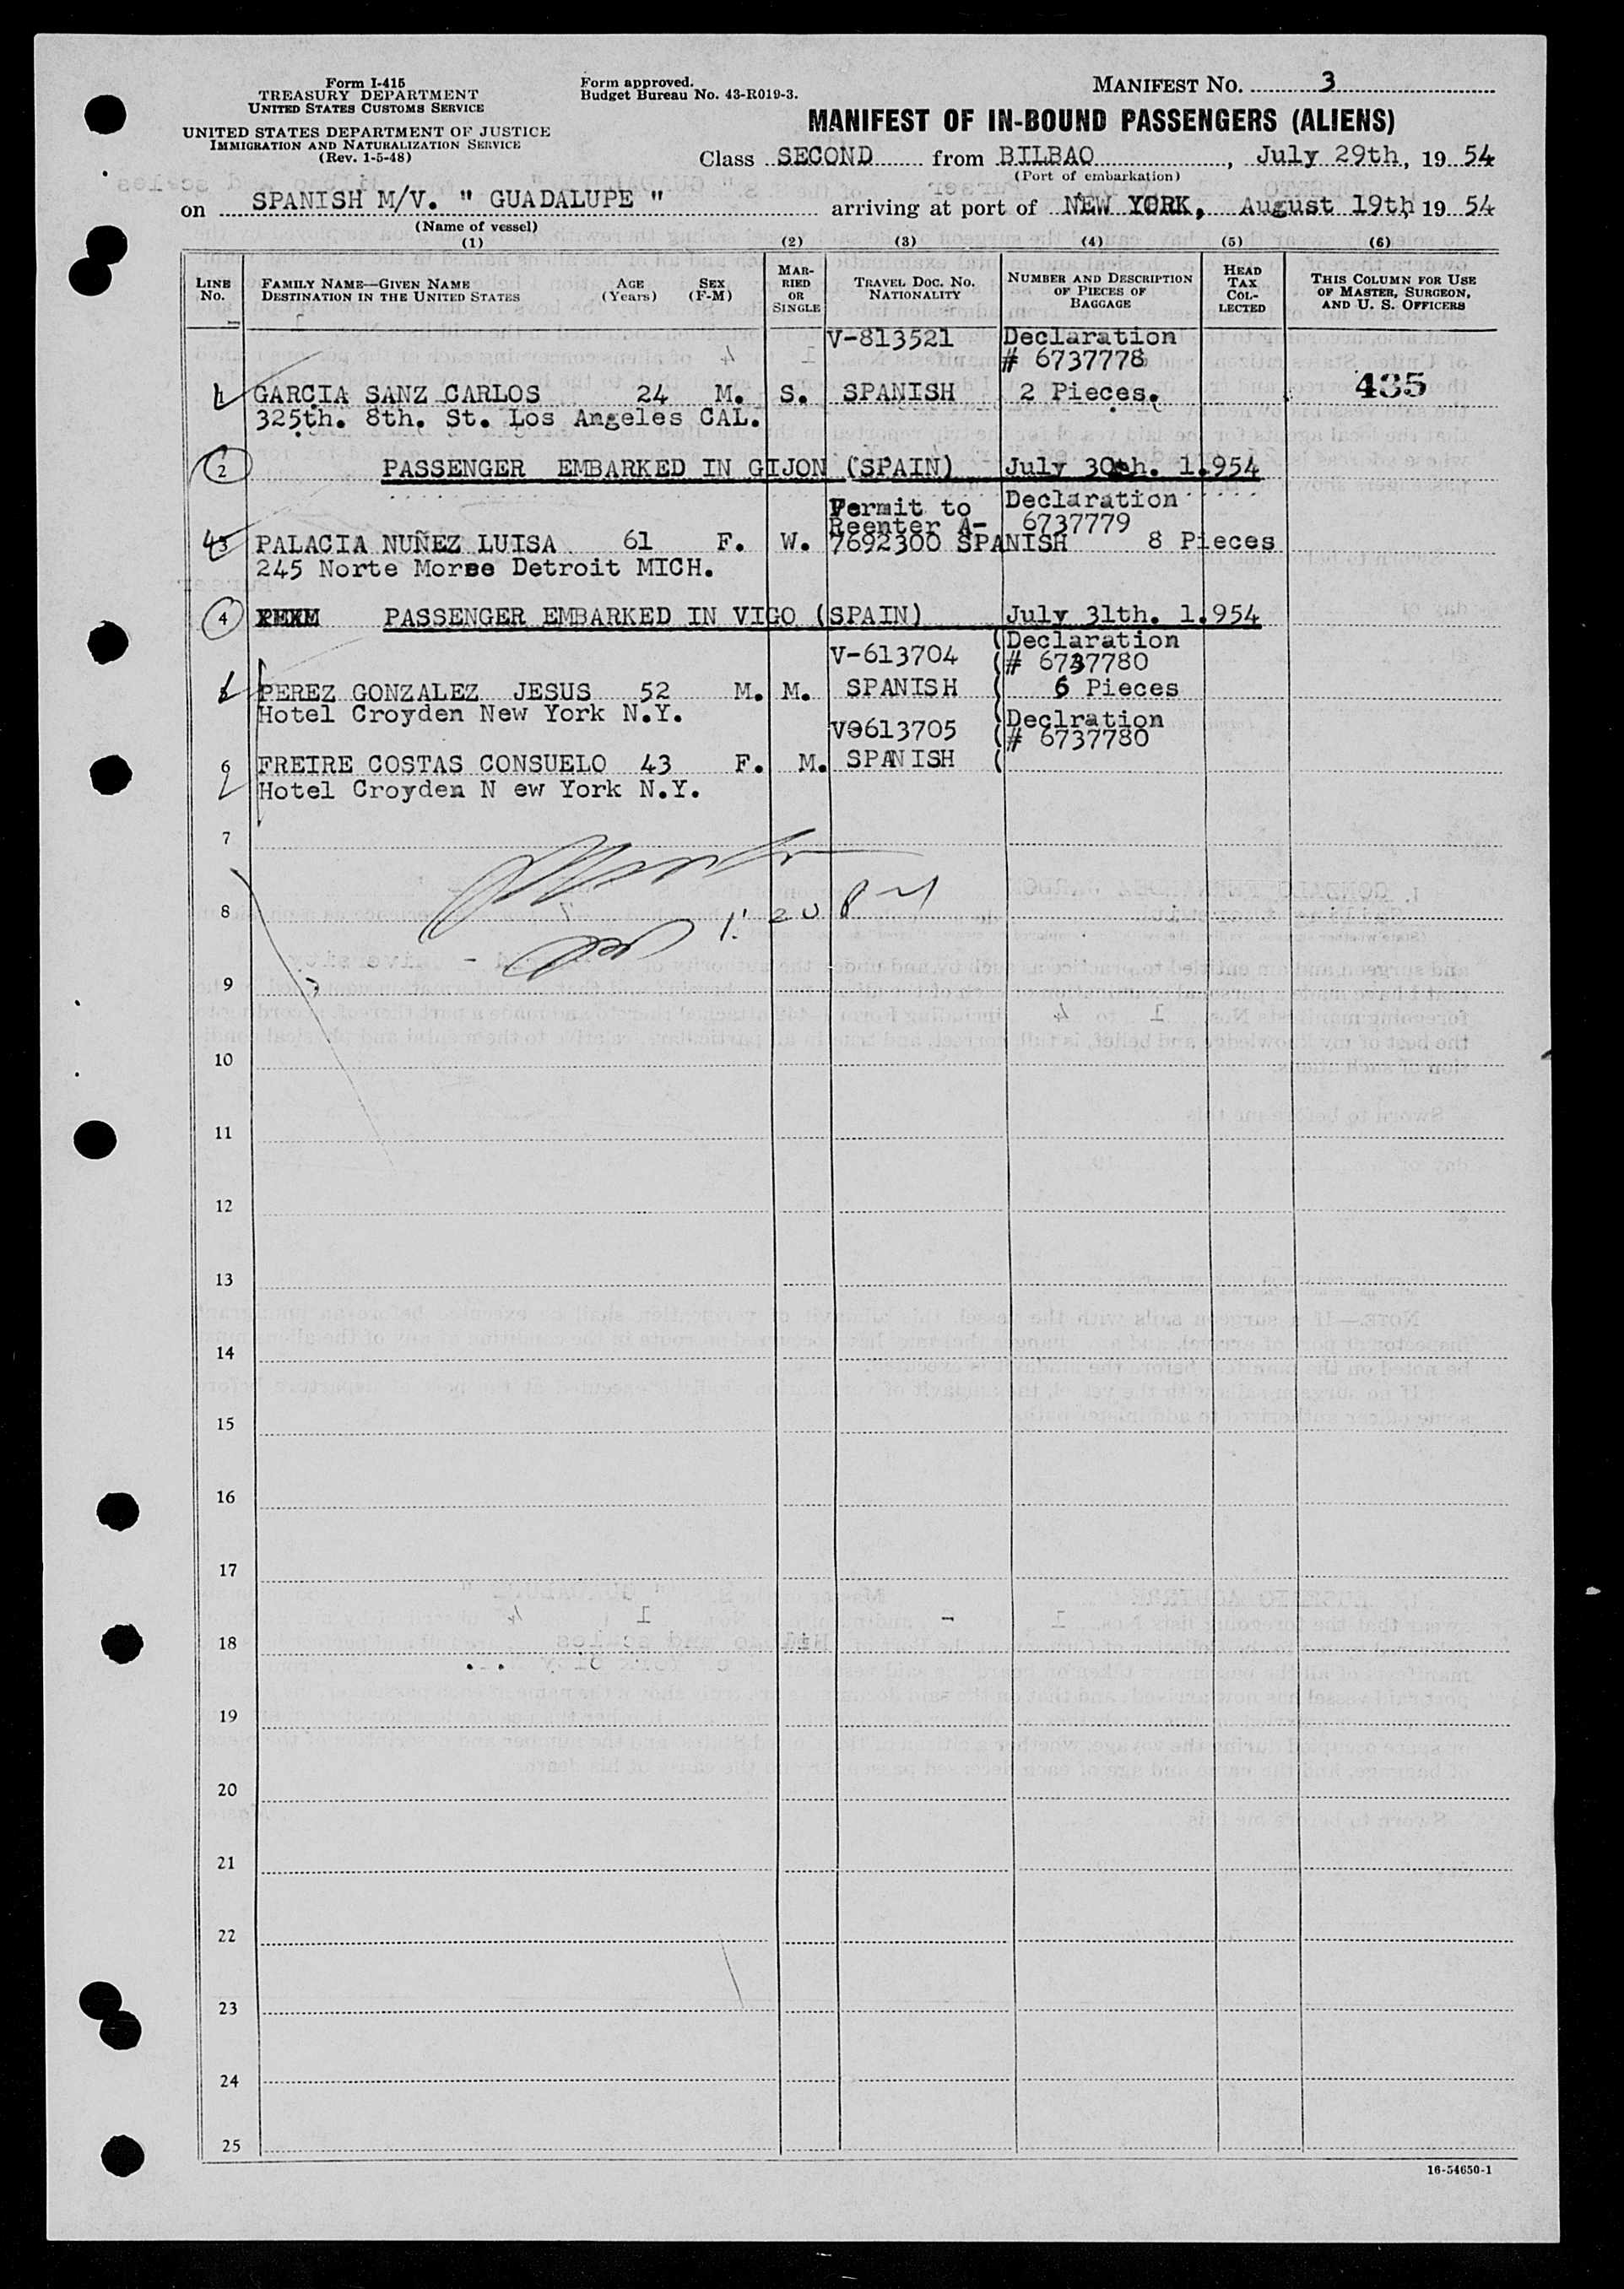 Form I-415
TREASURY DEPARTMENT
UNITED STATES CUSTOMS SERVICE
UNITED STATES DEPARTMENT OF JUSTICE
IMMIGRATION AND NATURALIZATION SERVICE
(Rev. 1-5-48)
Form approved.
Budget Bureau No. 43-R019-3.
MANIFEST NO. 3
MANIFEST OF IN-BOUND PASSENGERS (ALIENS)
Class SECOND from BILBAO, July 29th, 19 54
(Port of embarkation)
on SPANISH M/V. " GUADALUPE " arriving at port of NEW YORK, August 19th 19 54
(Name of vessel)
(1) (2) (3) (4) (5) (6)
LINE No. FAMILY NAME—GIVEN NAME DESTINATION IN THE UNITED STATES AGE (Years) SEX (F-M) MARRIED OR SINGLE TRAVEL DOC. NO. NATIONALITY NUMBER AND DESCRIPTION OF PIECES OF BAGGAGE HEAD TAX COLLECTED THIS COLUMN FOR USE OF MASTER, SURGEON, AND U. S. OFFICERS
V-813521 Declaration
# 6737778
1 GARCIA SANZ CARLOS 24 M. S. SPANISH 2 Pieces. 435
325th. 8th. St. Los Angeles CAL.
2 PASSENGER EMBARKED IN GIJON (SPAIN) July 30th. 1.954
Permit to Declaration
Reenter A- 6737779
3 PALACIA NUÑEZ LUISA 61 F. W. 7692300 SPANISH 8 Pieces
245 Norte Morse Detroit MICH.
4 PASSENGER EMBARKED IN VIGO (SPAIN) July 31th. 1.954
V-613704 (Declaration
(# 6737780
5 PEREZ GONZALEZ JESUS 52 M. M. SPANISH ( 6 Pieces
Hotel Croyden New York N.Y.
V9613705 (Declration
(# 6737780
6 FREIRE COSTAS CONSUELO 43 F. M. SPANISH (
Hotel Croyden N ew York N.Y.
7
8
9
10
11
12
13
14
15
16
17
18
19
20
21
22
23
24
25
16-54650-1